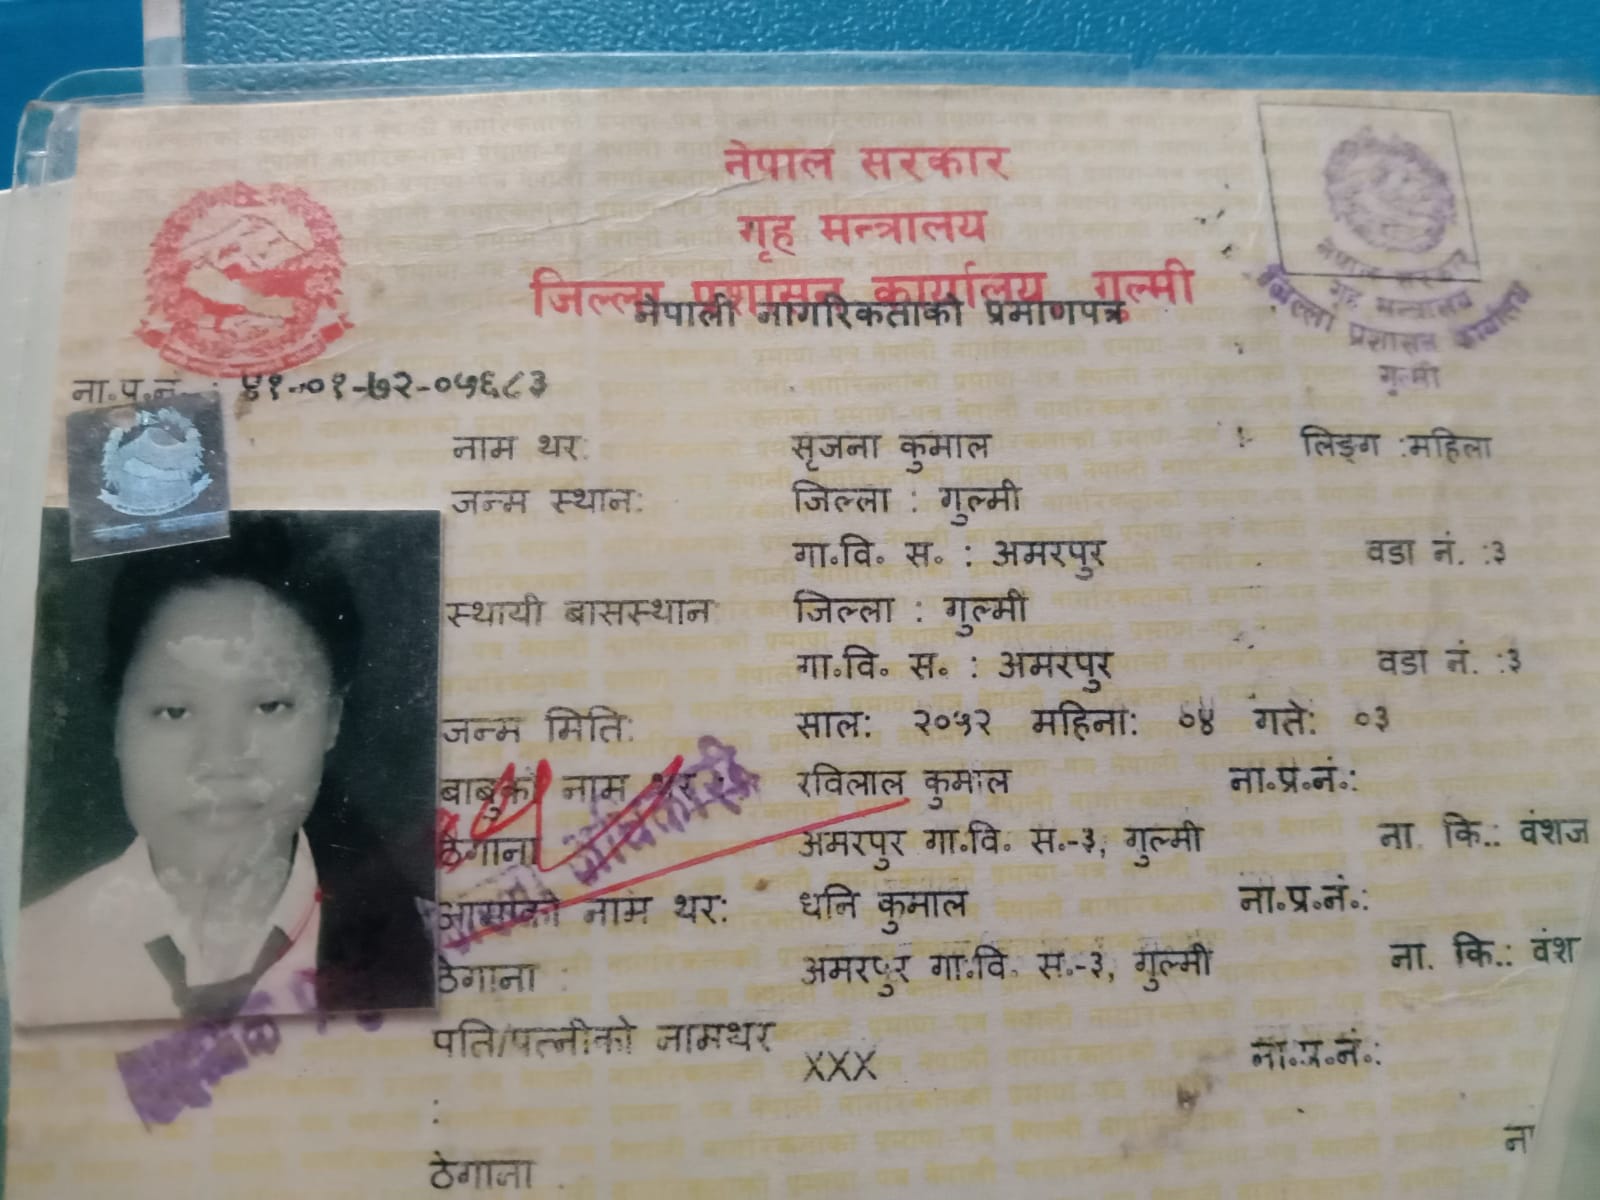 नेपाल सरकार
गृह मन्त्रालय
जिल्ला प्रशासन कार्यालय गुल्मी
नेपाली नागरिकताको प्रमाणपत्र
नेपाल सरकार
गृह मन्त्रालय
जिल्ला प्रशासन कार्यालय
गुल्मी
ना.प्र.नं. : ४१-०१-७२-०५६८३
नाम थर: सृजना कुमाल लिङ्ग :महिला
जन्म स्थान: जिल्ला : गुल्मी
गा.वि. स. : अमरपुर वडा नं. :३
स्थायी बासस्थान: जिल्ला : गुल्मी
गा.वि. स. : अमरपुर वडा नं. :३
जन्म मिति: साल: २०५२ महिना: ०४ गते: ०३
बाबुको नाम थर : रविलाल कुमाल ना.प्र.नं.:
ठेगाना अमरपुर गा.वि. स.-३, गुल्मी ना. कि.: वंशज
आमाको नाम थर: धनि कुमाल ना.प्र.नं.:
ठेगाना : अमरपुर गा.वि. स.-३, गुल्मी ना. कि.: वंश
पति/पत्नीको नामथर XXX ना.प्र.नं.:
:
ठेगाना . ना